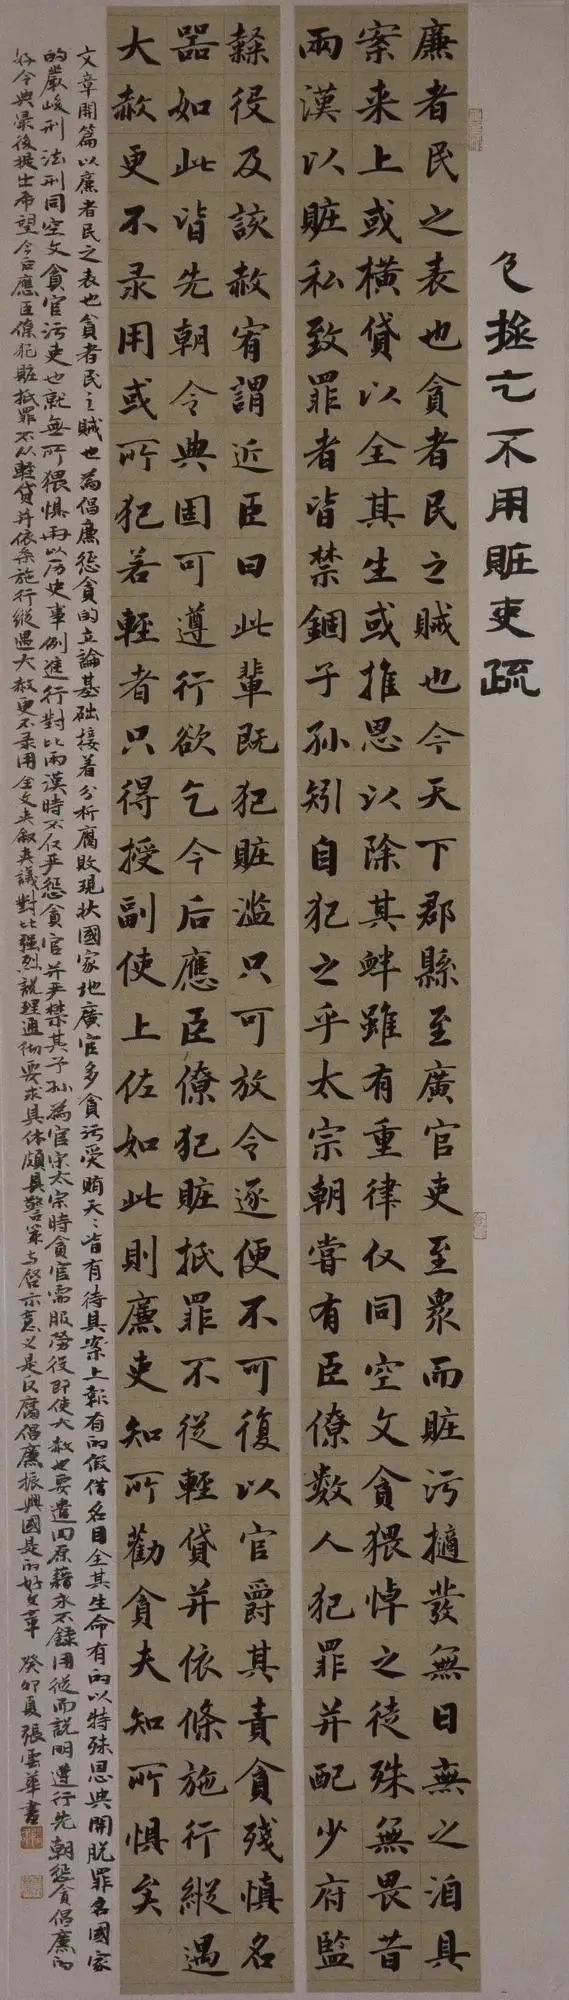 包拯乞不用贓吏疏
廉者民之表也貪者民之賊也今天下郡縣至廣官吏至眾而贓污擿發無日無之洎具
案来上或橫貸以全其生或推恩以除其衅雖有重律仅同空文貪猥悼之徒殊無畏昔
兩漢以贓私致罪者皆禁錮子孫矧自犯之乎太宗朝嘗有臣僚數人犯罪并配少府監
隸役及該赦宥謂近臣曰此輩既犯贓滥只可放令逐便不可復以官爵其責貪殘慎名
器如此皆先朝令典固可遵行欲乞今后應臣僚犯贓抵罪不從輕貸并依條施行縱遇
大赦更不录用或所犯若輕者只得授副使上佐如此則廉吏知所勸貪夫知所惧矣
文章開篇以廉者民之表也貪者民之賊也為倡廉惩貪的立論基础接着分析腐敗現状國家地廣官多貪污受賄天天皆有待具案上報有的假借名目全其生命有的以特殊恩典開脱罪名國家
的嚴峻刑法刑同空文貪官污吏也就無所猥惧再以历史事例進行對比兩漢時不仅严惩貪官并严禁其子孫為官宋太宗時貪官需服勞役即使大赦也要遣回原籍永不錄用從而説明遵行先朝惩貪倡廉的
好令典最後提出希望今后應臣僚犯贓抵罪不从輕貸并依条施行縱遇大赦更不录用全文夹叙夹議對比强烈説理通彻要求具体頗具警策与啓示意义是反腐倡廉振興國是的好文章 癸卯夏張雲華書